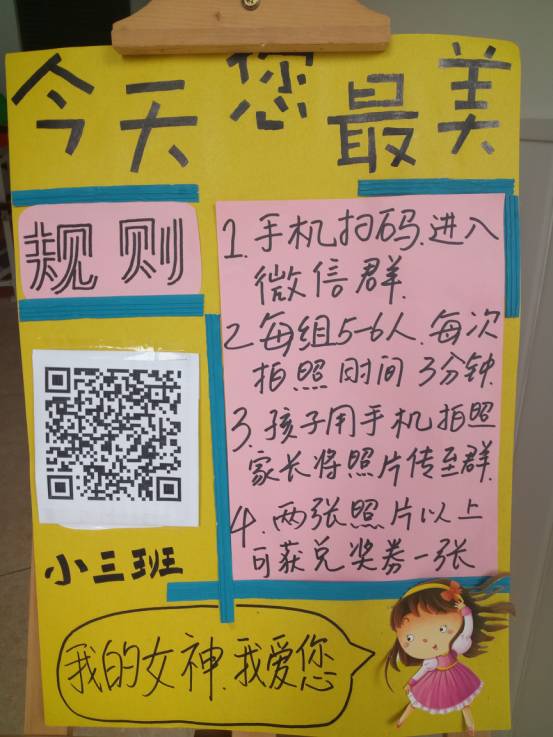 今天您最美
规则
1.手机扫码.进入
微信群.
2.每组5-6人.每次
拍照时间3分钟.
3.孩子用手机拍照
家长将照片传至群.
4.两张照片以上
可获兑奖券一张
小三班
我的女神.我爱您